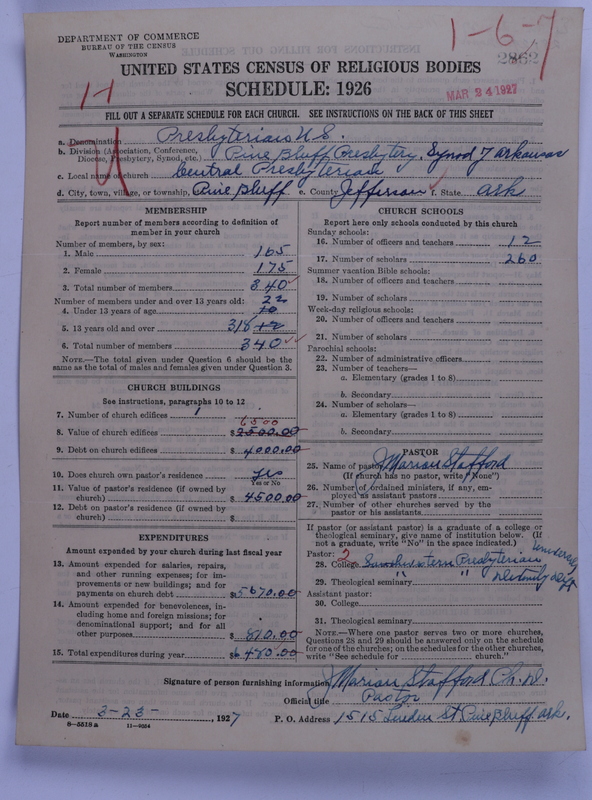 DEPARTMENT OF COMMERCE
BUREAU OF THE CENSUS
WASHINGTON
1-6-7
2862
UNITED STATES CENSUS OF RELIGIOUS BODIES
SCHEDULE: 1926
MAR 24 1927
FILL OUT A SEPARATE SCHEDULE FOR EACH CHURCH. SEE INSTRUCTIONS ON THE BACK OF THIS SHEET
a. Denomination Presbyterian U.S.
b. Division (Association, Conference, Diocese, Presbytery, Synod, etc.) Pine Bluff Presbytery, Synod of Arkansas
c. Local name of church Central Presbyterian
d. City, town, village, or township, Pine Bluff e. County Jefferson f. State Ark
MEMBERSHIP
Report number of members according to definition of
member in your church
Number of members, by sex:
1. Male 165
2. Female 175
3. Total number of members 340
Number of members under and over 13 years old:
4. Under 13 years of age 22
5. 13 years old and over 318
6. Total number of members 340
NOTE.—The total given under Question 6 should be
same as the total of males and females given under Question 3.
CHURCH BUILDINGS
See instructions, paragraphs 10 to 12
7. Number of church edifices 1
6500
8. Value of church edifices $ 2500.00
9. Debt on church edifices $ 4000.00
10. Does church own pastor's residence yes
Yes or No
11. Value of pastor's residence (if owned by
church) $ 4500.00
12. Debt on pastor's residence (if owned by
church) $
EXPENDITURES
Amount expended by your church during last fiscal year
13. Amount expended for salaries, repairs,
and other running expenses; for im-
provements or new buildings; and for
payments on church debt $ 5670.00
14. Amount expended for benevolences, in-
cluding home and foreign missions; for
denominational support; and for all
other purposes $ 810.00
15. Total expenditures during year $ 6480.00
CHURCH SCHOOLS
Report here only schools conducted by this church
Sunday schools:
16. Number of officers and teachers 12
17. Number of scholars 260
Summer vacation Bible schools:
18. Number of officers and teachers
19. Number of scholars
Week-day religious schools:
20. Number of officers and teachers
21. Number of scholars
Parochial schools:
22. Number of administrative officers
23. Number of teachers—
a. Elementary (grades 1 to 8)
b. Secondary
24. Number of scholars—
a. Elementary (grades 1 to 8)
b. Secondary
PASTOR
25. Name of pastor Marion Stafford
(If church has no pastor, write "None")
26. Number of ordained ministers, if any, em-
ployed as assistant pastors
27. Number of other churches served by the
pastor or his assistants
If pastor (or assistant pastor) is a graduate of a college or
theological seminary, give name of institution below. (If
not a graduate, write "No" in the space indicated.)
Pastor: 2
28. College Southwestern Presbyterian University
29. Theological seminary " " Divinity
Assistant pastor:
30. College
31. Theological seminary
NOTE.—Where one pastor serves two or more churches,
Questions 28 and 29 should be answered only on the schedule
for one of the churches; on the schedules for the other churches,
write "See schedule for church."
Signature of person furnishing information Marion Stafford
Official title Pastor
Date 3-23-, 1927
P. O. Address 1515 Linden St Pine Bluff Ark.
8-5518a 11-9554